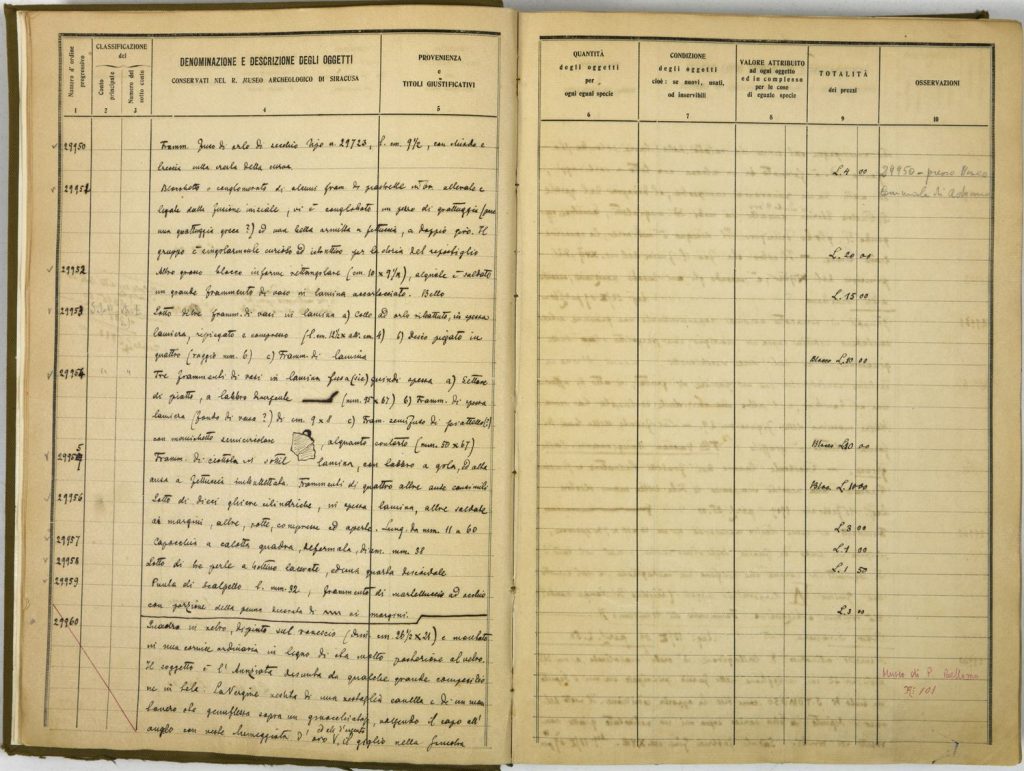 Numero d'ordine progressivo
CLASSIFICAZIONE
del
Conto principale
Numero del sotto conto
DENOMINAZIONE E DESCRIZIONE DEGLI OGGETTI
CONSERVATI NEL R. MUSEO ARCHEOLOGICO DI SIRACUSA
PROVENIENZA
e
TITOLI GIUSTIFICATIVI
1 2 3 4 5
29950 Framm. fuso di orlo di secchio tipo n. 29723, l. cm. 9½, con
sulla cresta della curva
29951 Blocchetto conglomerato di alcuni fram. di piastrelle in
legate dalla fusione iniziale, vi è conglobato un pezzo di grattuggia (
una grattuggia greca?) ed una bella armilla a fettuccia, a doppio giro. Il
gruppo è singolarmente curioso ed istruttivo per la storia del ripostiglio
29952 Altro grosso blocco informe rettangolare (cm. 10 x 9½), al quale è saldato
un grande frammento di vaso in lamina accartocciato. Bello
29953 Lotto di tre framm. di vasi in lamina a) Collo ad orlo ributtato, in spessa
lamiera, ripiegato e compresso b) disco piegato in
quattro (raggio mm. 6) c) Framm. di lamina
29954 " " Tre frammenti di vasi in lamina fusa (sic) quindi spessa a) Settore
di piatto, a labbro divergente (mm. 75 x 67) b) Framm. di spessa
lamiera (fondo di vaso?) di cm. 9 x 8 c) Fram. semifuso di piattello(?)
con semicircolare, alquanto contorto (mm. 50 x 67)
29955 Framm. di ciottola in sottil lamina, con labbro a gola, ed alta
ansa a fettuccia imbullettata. Frammenti di quattro altre anse consimili
29956 Lotto di dieci ghiere cilindriche, in spessa lamina, altre saldate
ai margini, altre, rotte, compresse ed aperte. Lung. da mm. 11 a 60
29957 Capocchia a calotta quadra, deformata, diam. mm. 38
29958 Lotto di tre perle a bottino lacerate, ed una quarta discoidale
29959 Punta di scalpello l. mm. 92, frammento di martelluccio ad occhio
con porzione della penna decorata di ai margini.
29960 Quadro in vetro, dipinto sul rovescio (Dim. cm. 26½ x 21) e montato
in una cornice ordinaria in legno di età molto posteriore al vetro.
Il soggetto è l'Annziata desunta da qualche grande composizio
ne in tela. La Vergine vestita di una e di un
che genuflessa sopra un ginocchiatoio, volgendo il capo all'
angelo con veste d'oro ed argento giglio nella
QUANTITÀ
degli oggetti
per
ogni egual specie
CONDIZIONE
degli oggetti
cioè: se nuovi, usati,
od inservibili
VALORE ATTRIBUITO
ad ogni oggetto
ed in complesso
per le cose
di eguale specie
TOTALITÀ
dei prezzi
OSSERVAZIONI
6 7 8 9 10
L. 4 00 29950 - presso Museo
L. 20 00
L. 15 00
Blocco L. 10 00
Blocco L. 10 00
Blocco L. 10 00
L. 3 00
L. 1 00
L. 1 50
L. 3 00
Museo di P. Bellomo
N. 101